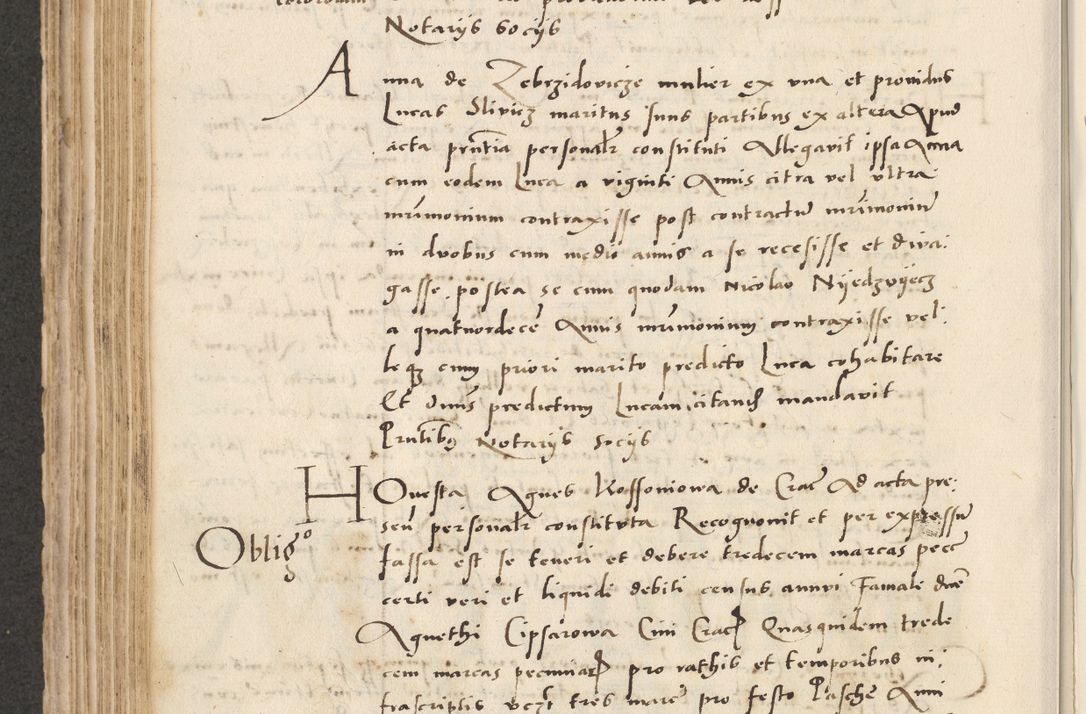 Notariis Sociis
Anna de Zebrzidovicze mulier ex una et providus
Lucas Slivicz maritus suus partibus ex altera Apud
acta prntia personalr constituti Allegavit ipsa Anna
cum eodem Luca a viginti Annis citra vel ultra
mrimonium contraxisse post contractu mrimoniu
in duobus cum medio annis a se recesisse et diva:
gasse postea se cum quodam Nicolao Nyedzvyecz
a quatuordece Annis mrimonium contraxisse vel:
leqz cum priori marito predicto Luca cohabitare
Et Dnus predictum Lucam citand mandavit
Prntibus Notariis Sociis
Honesta Agnes Kossoniowa de Crac Ad acta pre:
sen personalr constituta Recognovit et per expressu
Obligo
fassa est se teneri et debere tredecem marcas pecc
certi veri et liquidi debiti census annui Famate dne
Agnethi Cipsarowa Civi Crac Quasquidem trede
cem marcas pecuniar pro rathis et temporibus in:
frascriptis vczt tres marc pro festo Pasche Anni